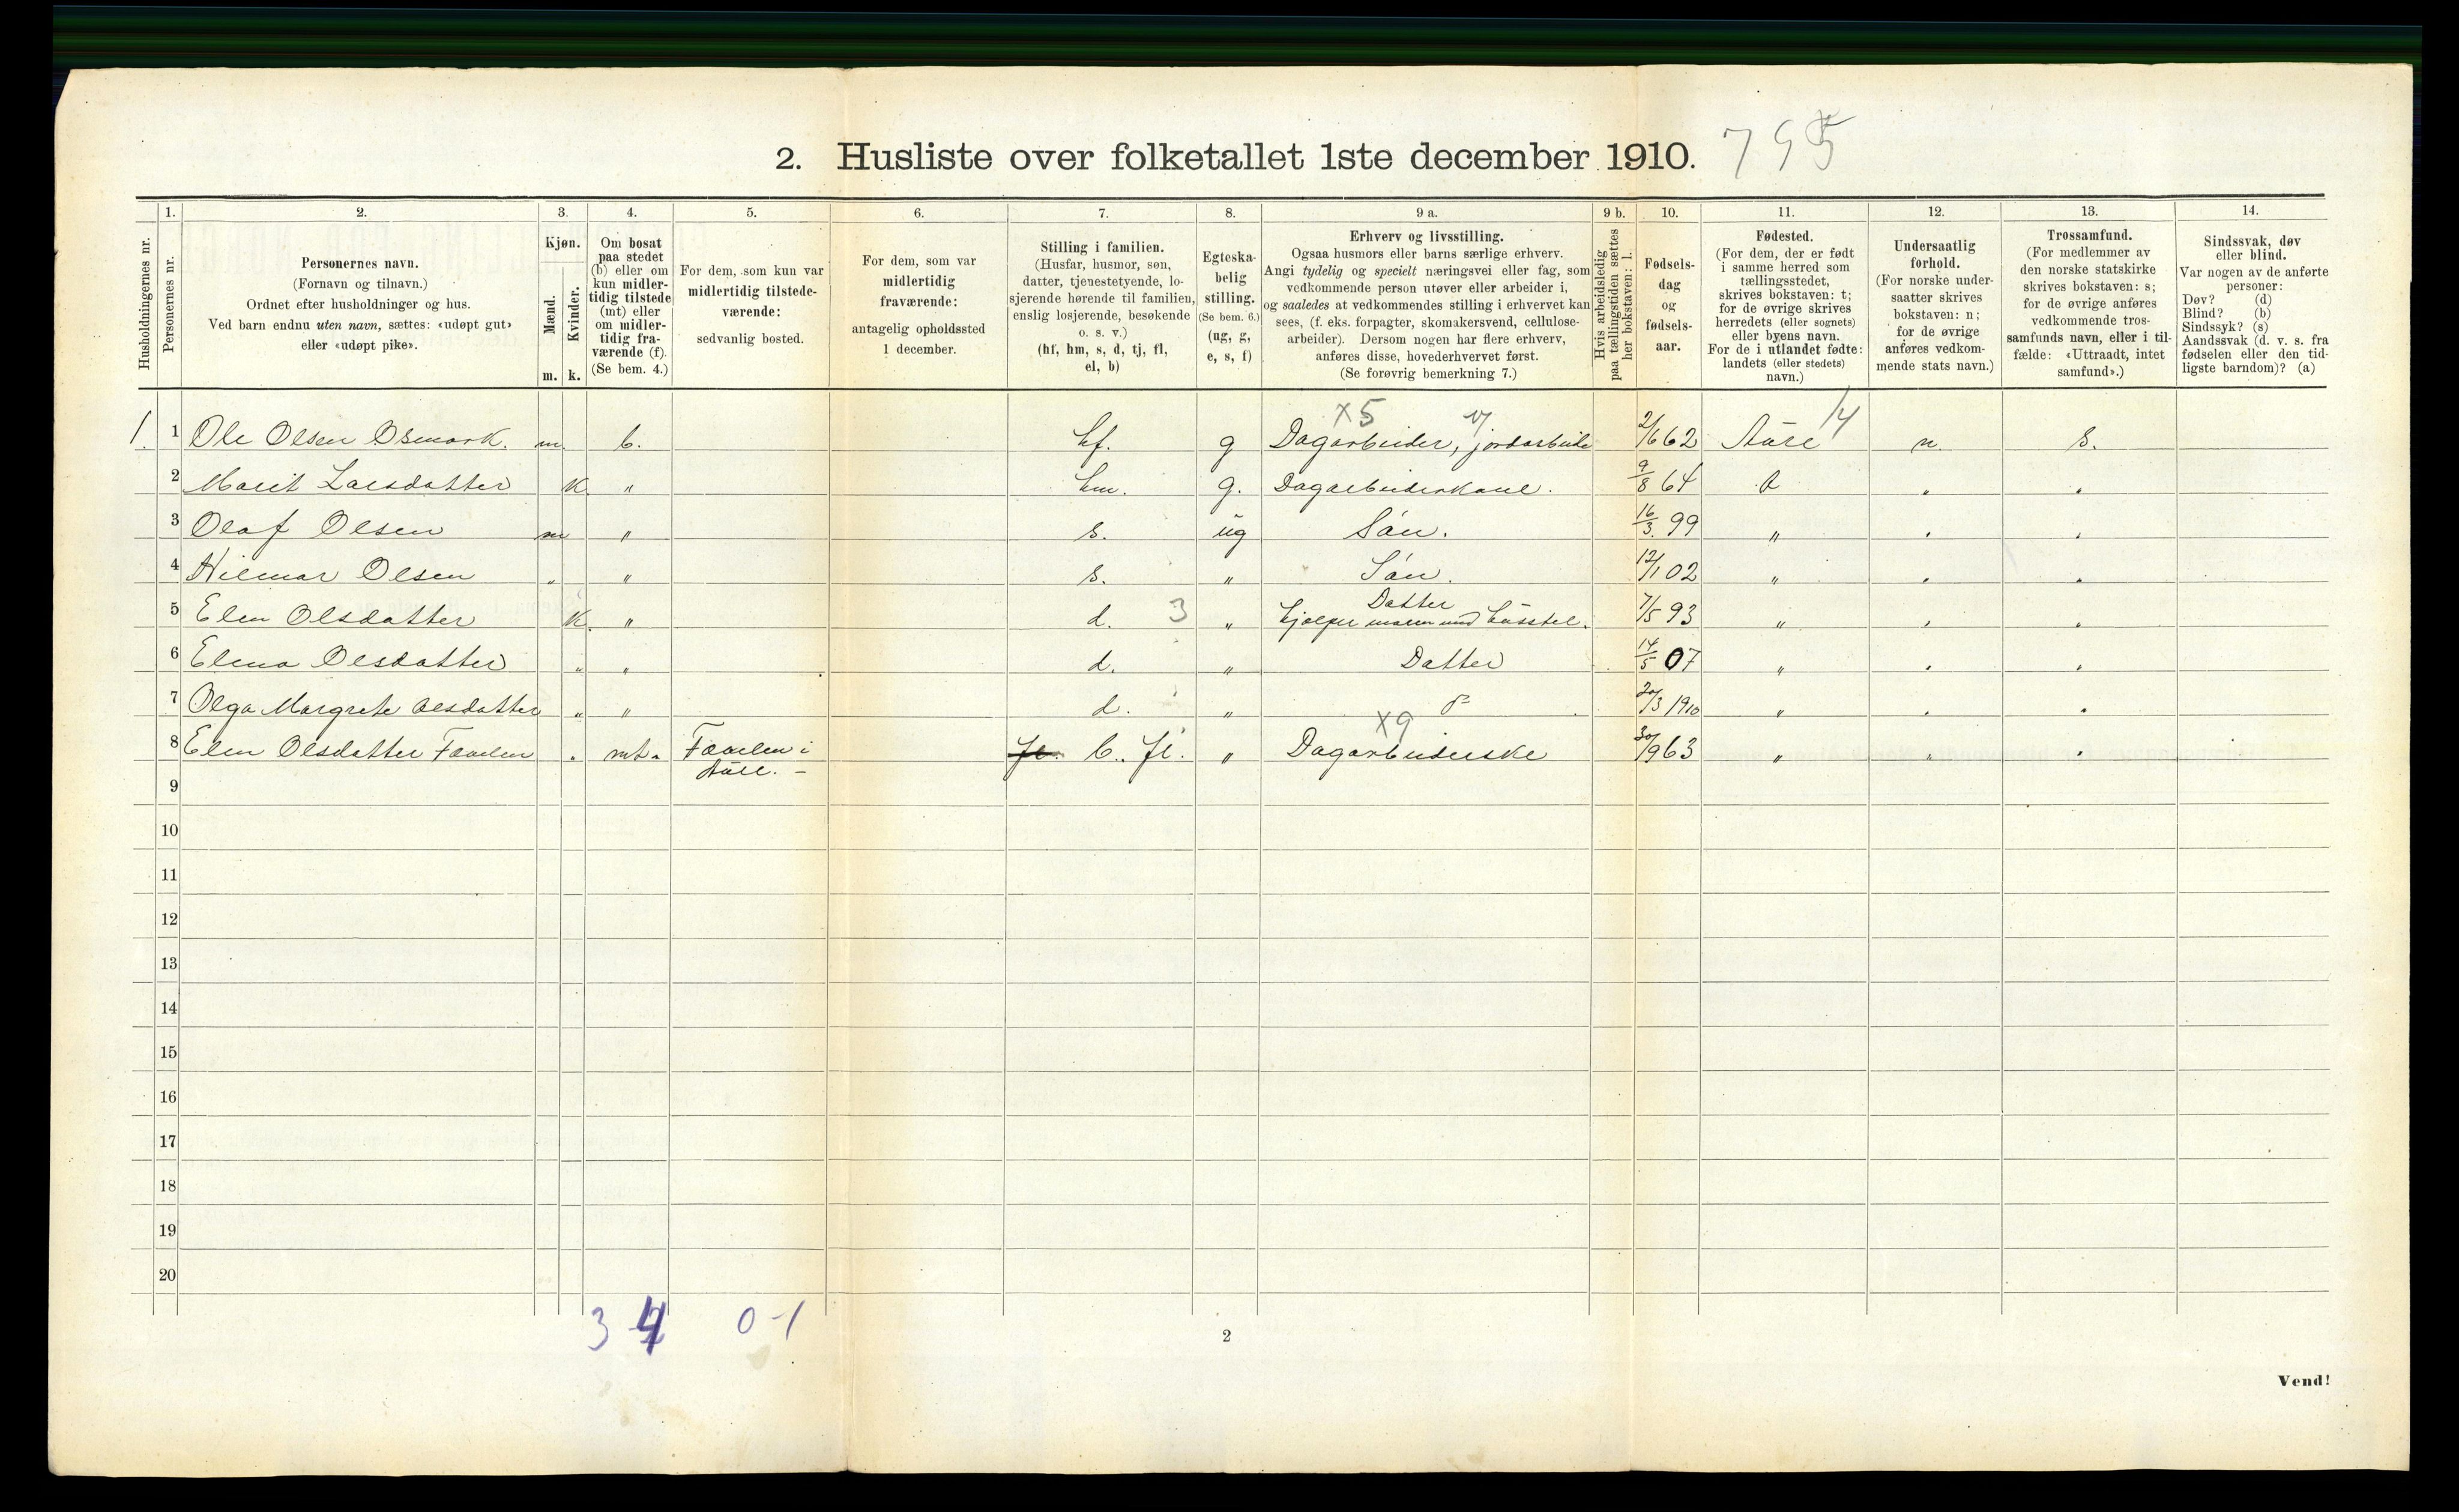 2. Husliste over folketallet 1ste december 1910. 795
Husholdningernes nr.
1. Personernes nr.
2. Personernes navn.
(Fornavn og tilnavn.)
Ordnet efter husholdninger og hus.
Ved barn endnu uten navn, sættes: «udøpt gut»
eller «udøpt pike».
3. Kjøn.
Mænd. Kvinder.
m. k.
4. Om bosat
paa stedet
(b) eller om
kun midler-
tidig tilstede
(mt) eller
om midler-
tidig fra-
værende (f).
(Se bem. 4.)
5. For dem, som kun var
midlertidig tilstede-
værende:
sedvanlig bosted.
6. For dem, som var
midlertidig
fraværende:
antagelig opholdssted
1 december.
7. Stilling i familien.
(Husfar, husmor, søn,
datter, tjenestetyende, lo-
sjerende hørende til familien,
enslig losjerende, besøkende
o. s. v.)
(hf, hm, s, d, tj, fl,
el, b)
8. Egteska-
belig
stilling.
(Se bem. 6.)
(ug, g,
e, s, f)
9 a. Erhverv og livsstilling.
Ogsaa husmors eller barns særlige erhverv.
Angi tydelig og specielt næringsvei eller fag, som
vedkommende person utøver eller arbeider i,
og saaledes at vedkommendes stilling i erhvervet kan
sees, (f. eks. forpagter, skomakersvend, cellulose-
arbeider). Dersom nogen har flere erhverv,
anføres disse, hovederhvervet først.
(Se forøvrig bemerkning 7.)
9 b. Hvis arbeidsledig
paa tællingstiden sættes
her bokstaven: l.
10. Fødsels-
dag
og
fødsels-
aar.
11. Fødested.
(For dem, der er født
i samme herred som
tællingsstedet,
skrives bokstaven: t;
for de øvrige skrives
herredets (eller sognets)
eller byens navn.
For de i utlandet fødte:
landets (eller stedets)
navn.)
12. Undersaatlig
forhold.
(For norske under-
saatter skrives
bokstaven: n;
for de øvrige
anføres vedkom-
mende stats navn.)
13. Trossamfund.
(For medlemmer av
den norske statskirke
skrives bokstaven: s;
for de øvrige anføres
vedkommende tros-
samfunds navn, eller i til-
fælde: «Uttraadt, intet
samfund».)
14. Sindssvak, døv
eller blind.
Var nogen av de anførte
personer:
Døv? (d)
Blind? (b)
Sindssyk? (s)
Aandssvak (d. v. s. fra
fødselen eller den tid-
ligste barndom)? (a)
x5 14
1. 1 Ole Olsen Osmark. m. b. hf. g Dagarbeider, jordarbeide 2/6 62 Aure n. s.
2 Marit Larsdatter k. " hm. g. Dagarbeiderkone. 9/8 64 " "
3 Olaf Olsen m " s. ug Søn. 16/3 99 " " "
4 Hilmar Olsen " " s. " Søn. 12/1 02 " " "
Datter
5 Elen Olsdatter k. " d. 3 " hjælper moren med husstel. 7/5 93 " " "
6 Elena Olsdatter " " d. " Datter 14/5 07 " " "
7 Olga Margrete Olsdatter " " d. " 20/3 1910 " " "
x9
8 Elen Olsdatter Favelen " mt. Favelen i fl. b. fl. " Dagarbeiderske 30/9 63 " " "
Aure. –
9
10
11
12
13
14
15
16
17
18
19
20
3 4 0-1
2
Vend!